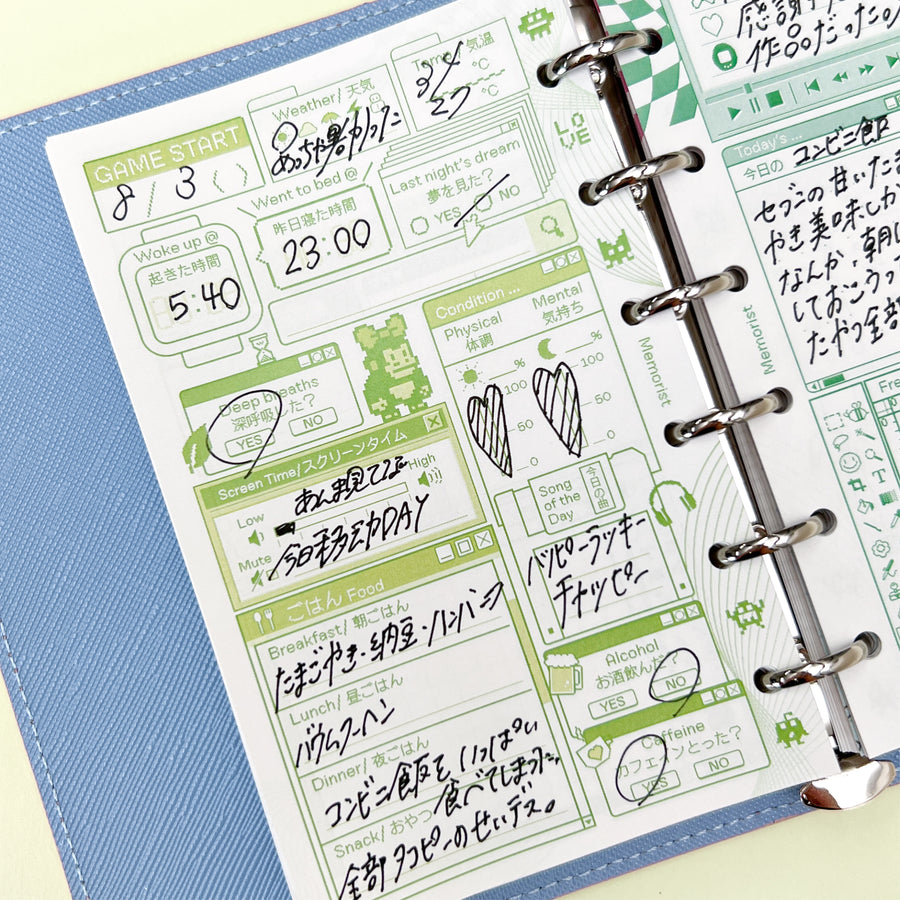 GAME START
8 / 3 ( )
Weather/ 天気
めっちゃ暑かった
Temp. 気温
℃
℃
27
LOVE
Woke up @
起きた時間
5:40
Went to bed @
昨日寝た時間
23:00
Last night's dream
夢を見た?
YES NO
Deep breaths
深呼吸した?
YES NO
Condition ...
Physical
体調
Mental
気持ち
% %
100 100
50 50
0 0
Screen Time/スクリーンタイム
Low High
Mute
あんま見てない
今日移動DAY
Song of the Day
今日の曲
ハッピーラッキー
チャッピー
ごはん Food
Breakfast/ 朝ごはん
たまごやき・納豆・ハンバーグ
Lunch/ 昼ごはん
バウムクーヘン
Dinner/ 夜ごはん
コンビニ飯をいっぱい
食べてしまった。
Snack/ おやつ
全部タコピーのせいデス。
Alcohol
お酒飲んだ?
YES NO
Caffeine
カフェインとった?
YES NO
Memorist
Memorist
感謝
作品だった。
Today's ...
今日の コンビニ飯
セブンの甘いたま
やき美味しか
なんか、朝
しておこうって
たやつ全部
Fre